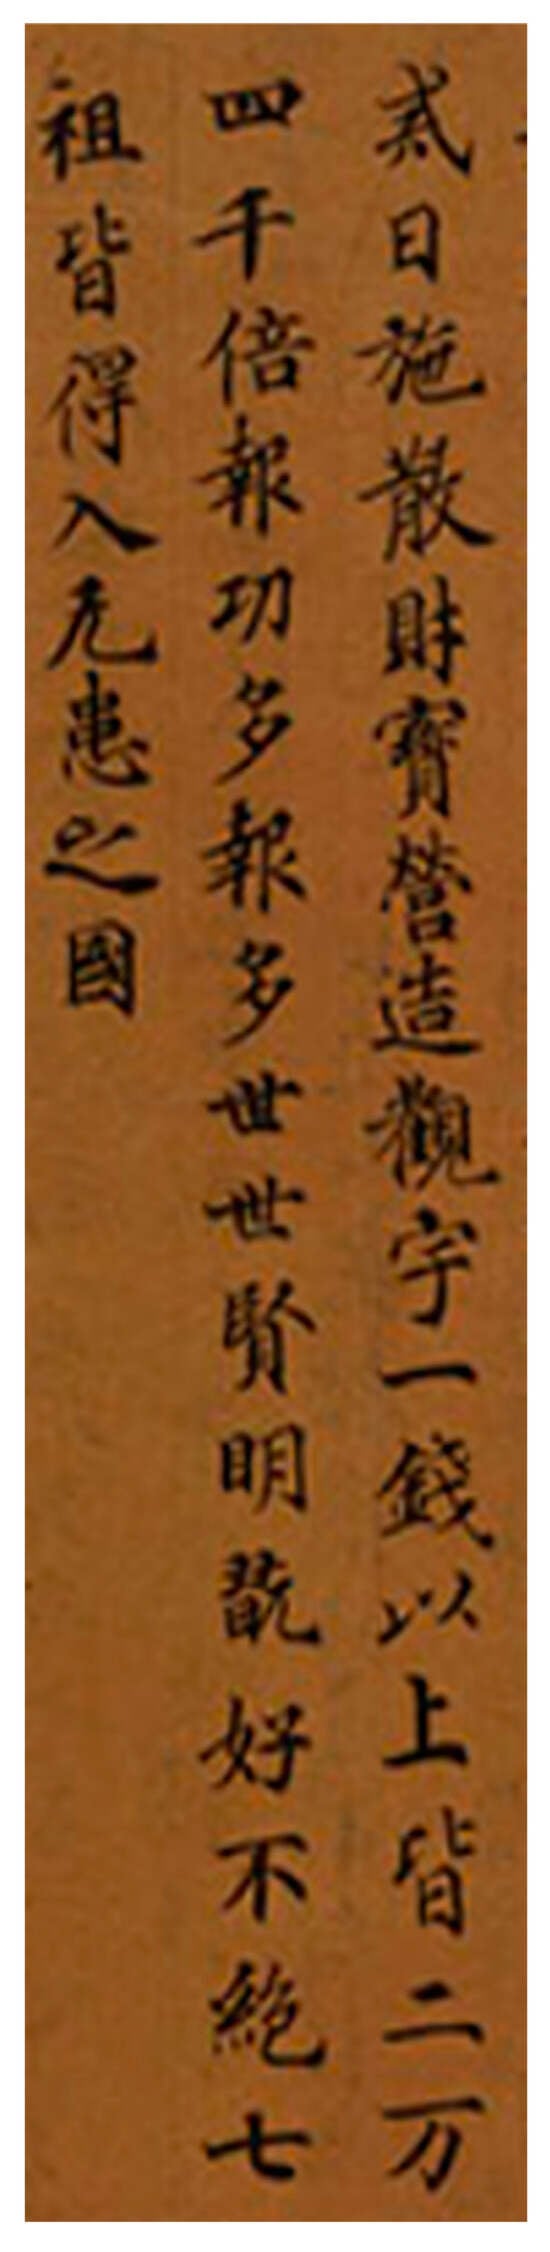 貳日施散財寶營造觀宇一錢以上皆二万
四千倍報功多報多世世賢明翫好不絶七
祖皆得入无患之國